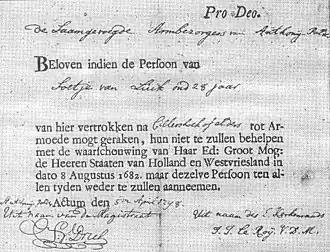 Pro Deo.
De Saamgevoegde Armbezorgers van Anthonij
Beloven indien de Persoon van
Soetje van Luik oud 28 jaar
van hier vertrokken na tot Ar-
moede mogt geraken, hun niet te zullen behelpen
met de waarschouwing van Haar Ed: Groot Mog:
de Heeren Staaten van Holland en Westvriesland in
dato 8 Augustus 1682. maar dezelve Persoon ten
allen tyden weder te zullen aanneemen.
Actum den April
Uit naam van de Magistraat Uit naam des E. Kerkenraads
V. D. M.